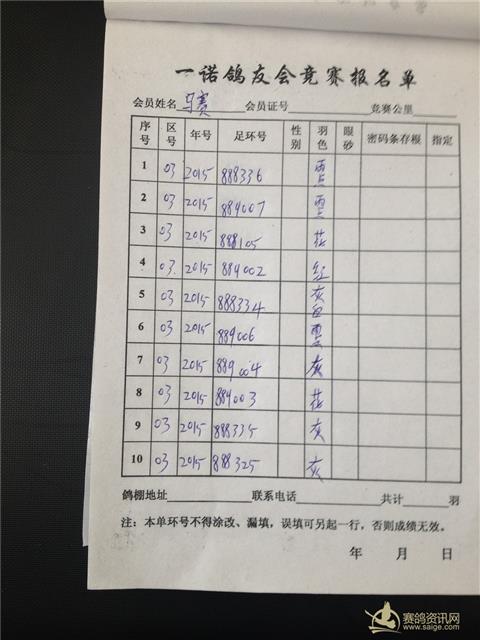 一诺鸽友会竞赛报名单
会员姓名 马赛 会员证号 竞赛公里
序号 区号 年号 足环号 性别 羽色 眼砂 密码条存根 指定
1 03 2015 888336 雨点
2 03 2015 889007 雨点
3 03 2015 888105 花
4 03 2015 889002 红
5 03 2015 888334 灰白
6 03 2015 889006
7 03 2015 889004 灰
8 03 2015 889003 花
9 03 2015 888335 灰
10 03 2015 888325 灰
鸽棚地址 联系电话 共计 羽
注:本单环号不得涂改、漏填,误填可另起一行,否则成绩无效。
年 月 日
赛鸽资讯网
www.saige.com